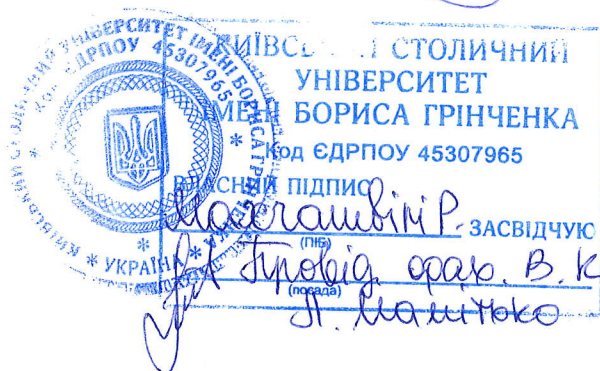 КИЇВСЬКИЙ СТОЛИЧНИЙ
УНІВЕРСИТЕТ
ІМЕНІ БОРИСА ГРІНЧЕНКА
Код ЄДРПОУ 45307965
ВЛАСНИЙ ПІДПИС
Махачашвілі Р. ЗАСВІДЧУЮ
(ПІБ)
Провід. фах. В. К
(посада)
КИЇВСЬКИЙ СТОЛИЧНИЙ УНІВЕРСИТЕТ ІМЕНІ БОРИСА ГРІНЧЕНКА
* УКРАЇНА *
Код ЄДРПОУ 45307965